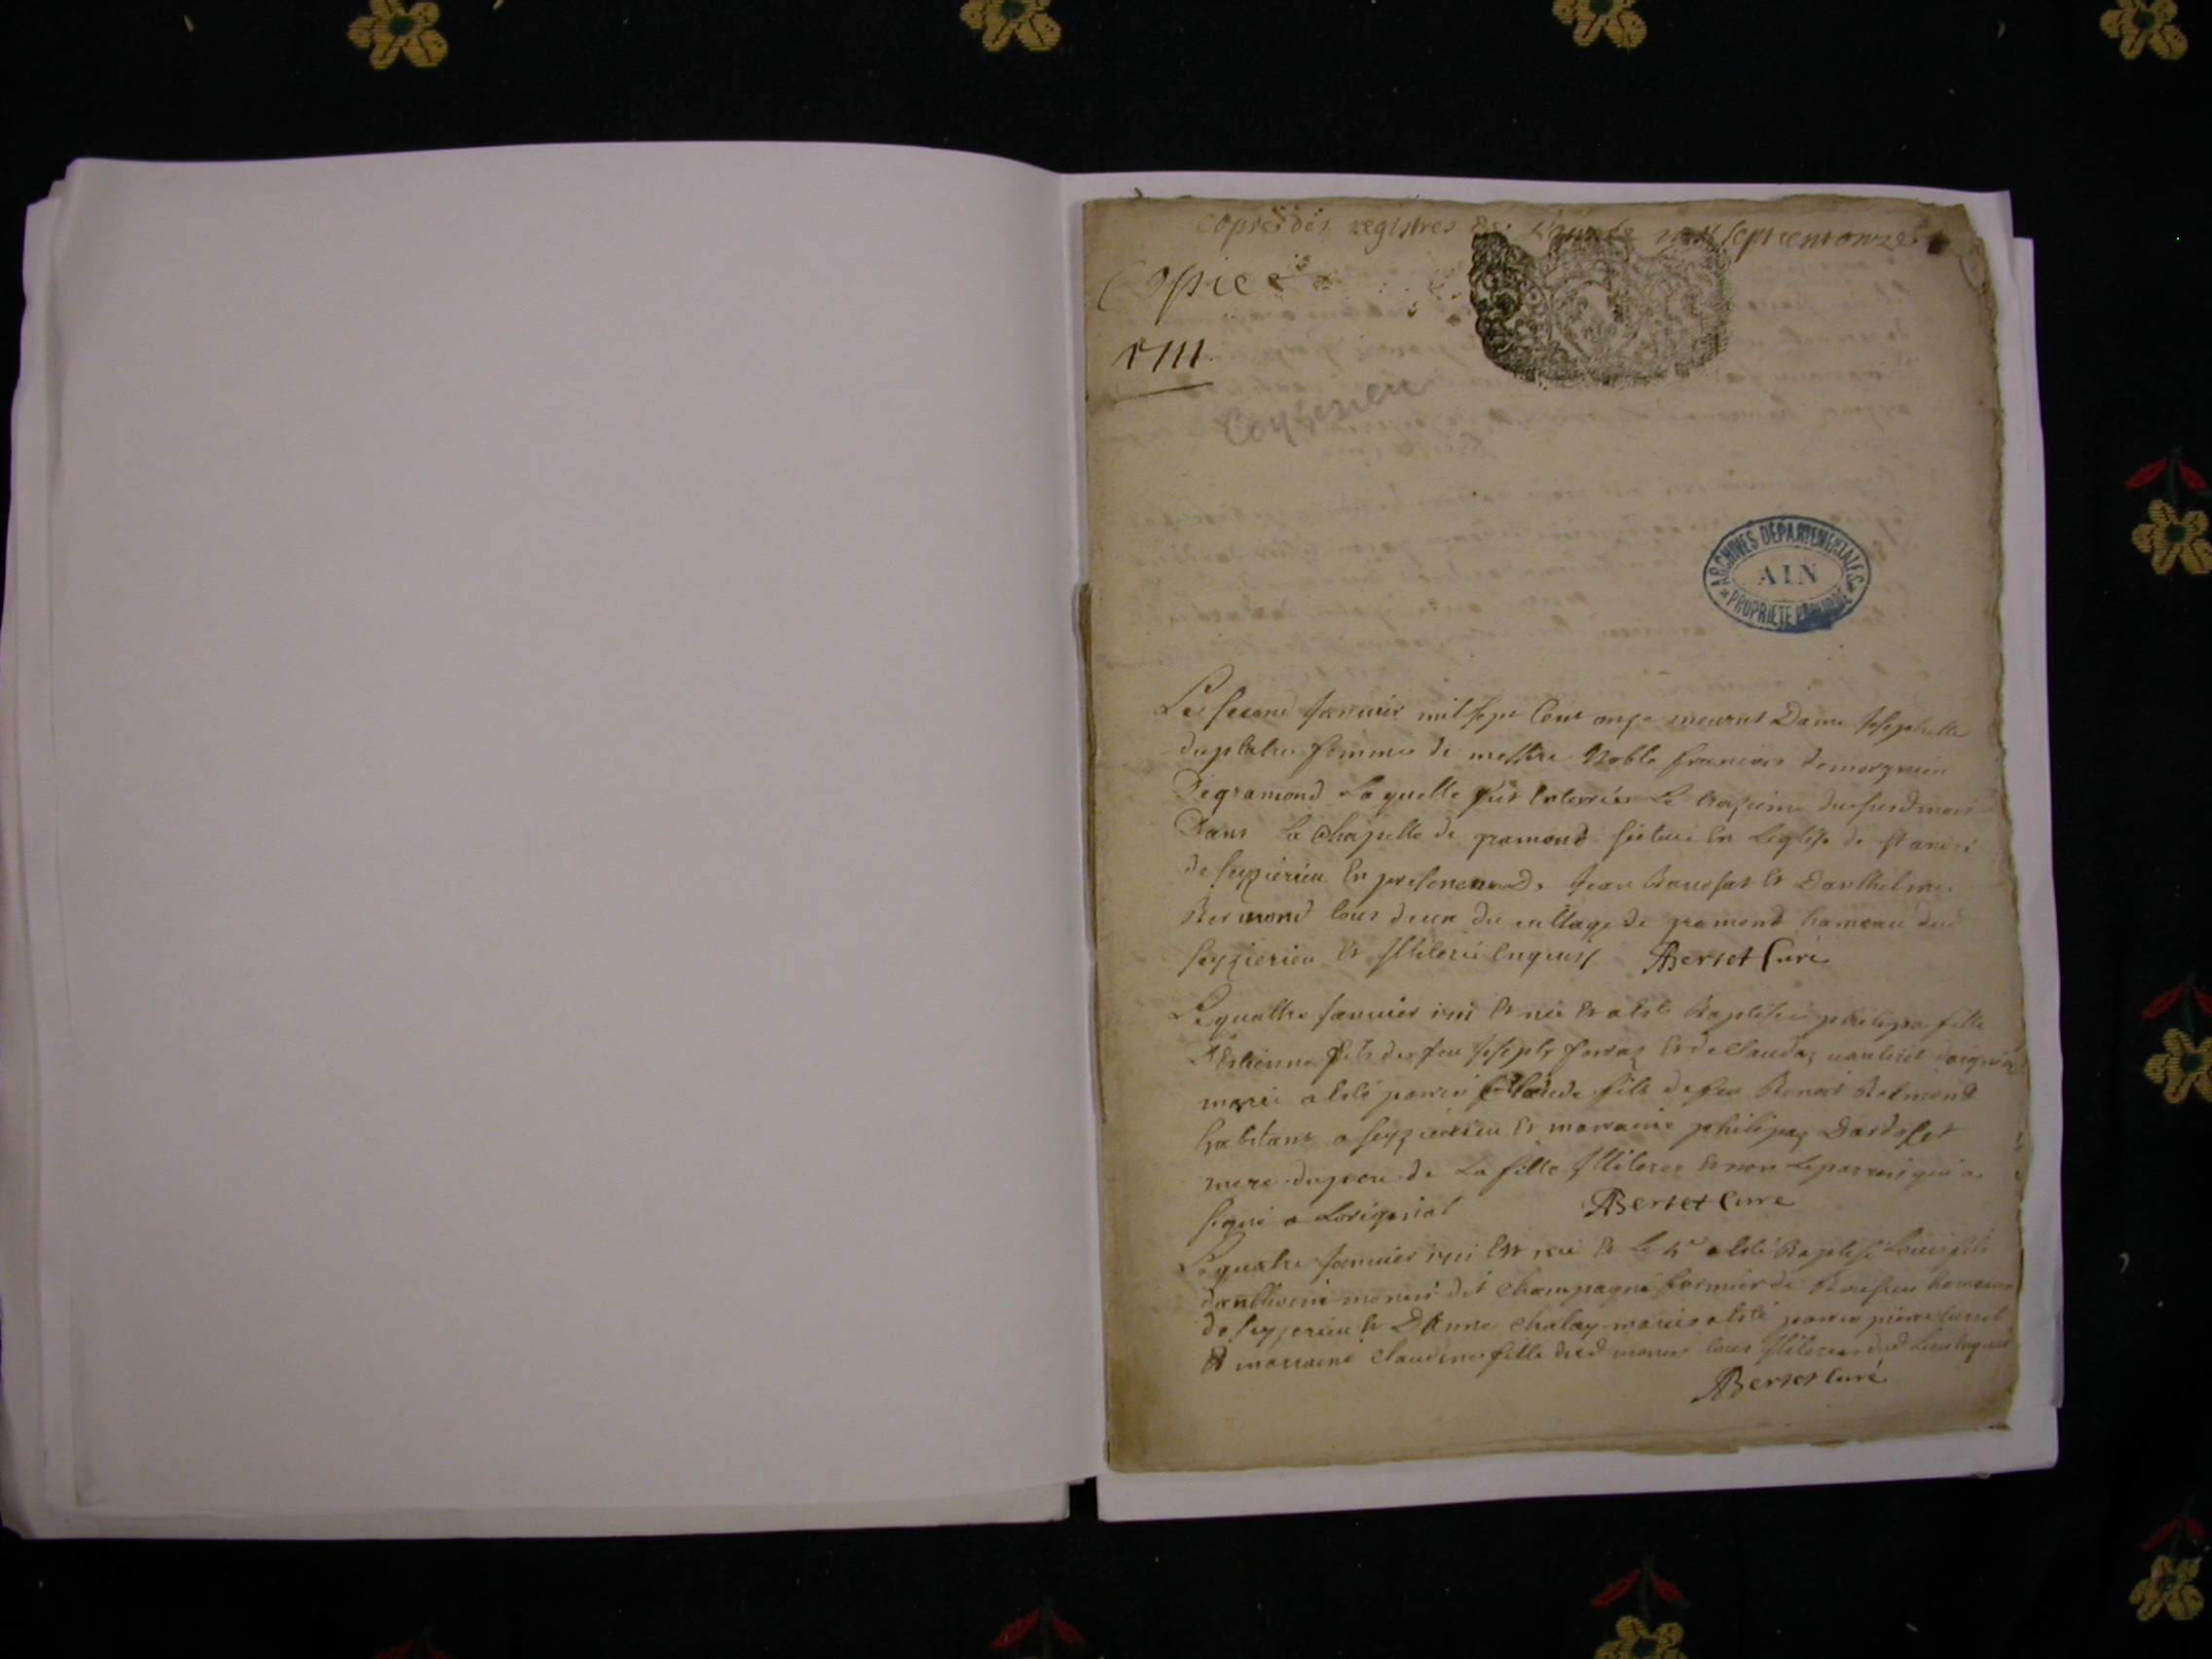 Copie des registres de L'année mil sept cent onze
Copie
1711.
Ceyzerieu
ARCHIVES DEPARTEMENTALES
AIN
PROPRIETE PUBLIQUE
Le second Januier mil sept Cent onze mourut Dame Josephette
duplatre femme de messire Noble francois demorgnieu
Degramond Laquelle fut Enterrée Le troisieme dususd mois
Dans La Chapelle de gramond scituée En Leglise de st andré
de seyzerieu En presence de Jean et Danthelme
Bermond tous deux du uillage de gramond hameau dud
seyzerieu Et illiterés Enquis Berset Curé
Le quattre Januier 1711 Et née Et a esté Baptisée philipa fille
D'Estienne fils de feu Joseph Et de Claudaz
mariés a esté parrin Claude fils de feu Benoit Belmond
habitant a seyzerieu Et marraine philipaz
mere du pere de La fille illiteree Et non Le parrein qui a
signé a Loriginal Berset Curé
Le quatre Januier 1711 Est né Et Le 5e a esté Baptisé Louis fils
danthoine monin dit Champagne fermier de hameau
de seyzerieu Et D'Anne Chalay mariés a esté parrin pierre
Et marraine Claudine fille dud monin tous illiterés
Berset Curé